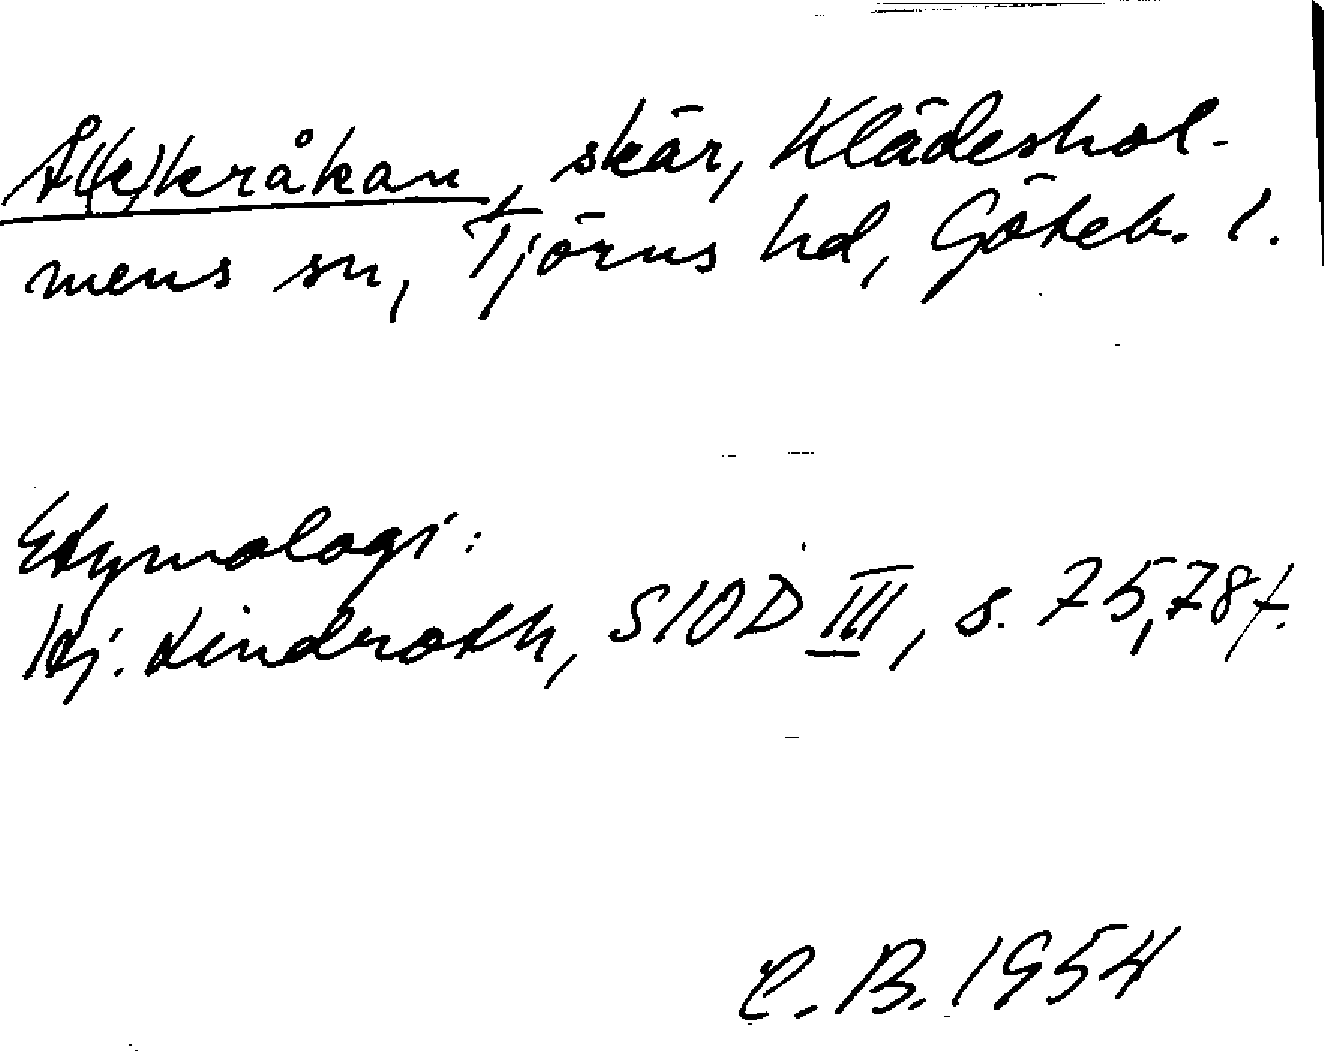 Å(k)kråkan, skär, Klädeshol-
mens sn, Tjörns hd, Göteb. l.
Etymologi:
Hj. Lindroth, SIOD III, s. 75, 78 f.
C. B. 1954